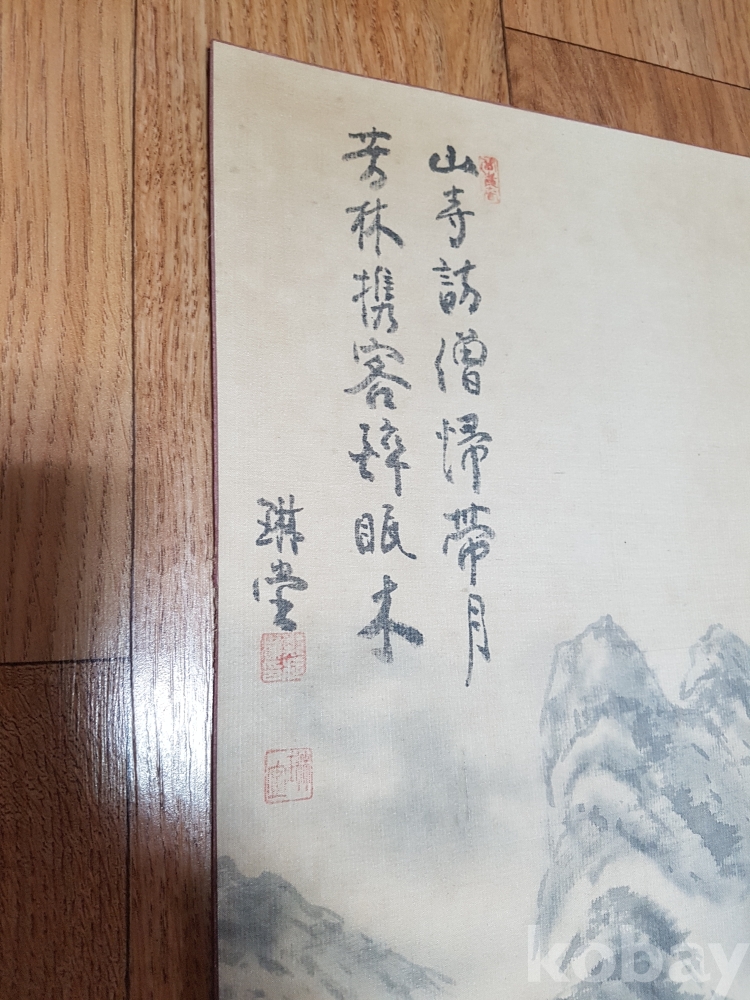 山寺訪僧帰帶月
芳林携客醉眠木
琪堂
kobay